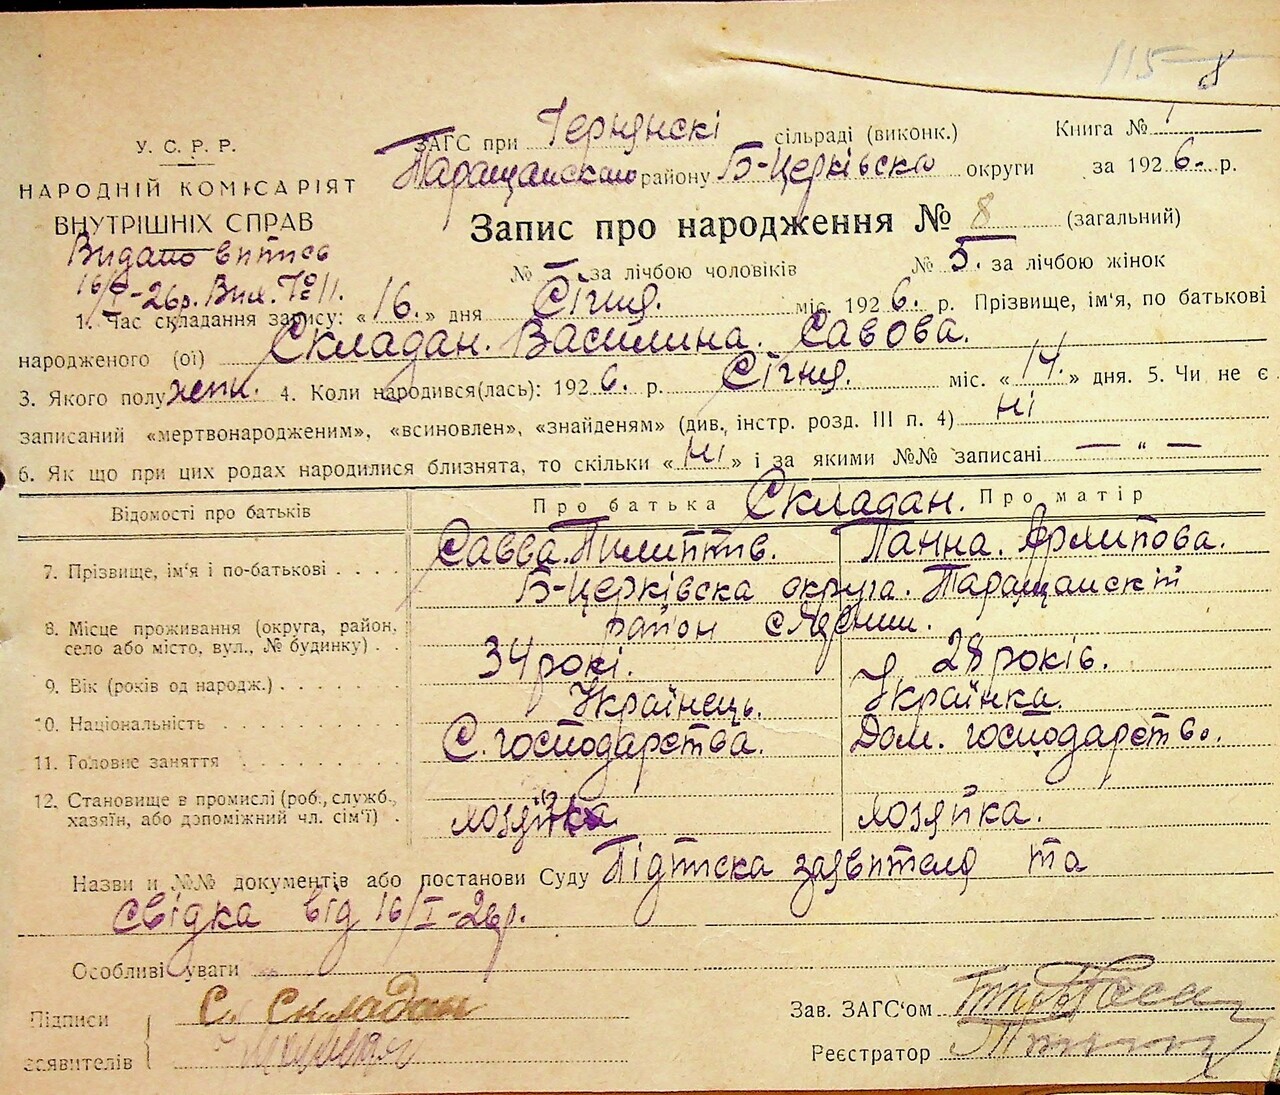 115 8
У. С. Р. Р.
НАРОДНІЙ КОМІСАРІЯТ
ВНУТРІШНІХ СПРАВ
Видано витпсь
16/I-26р. Вих. № 11.
ЗАГС при сільраді (виконк.) Книга № 1
Таращанськ району Б-Церківська округи за 1926. р.
Запис про народження № 8 (загальний)
№ — за лічбою чоловіків № 5. за лічбою жінок
1. Час складання запису: «16.» дня Січня. міс. 1926. р. Прізвище, ім'я, по батькові
народженого (ої) Складан. Василина. Савова.
3. Якого полу жін. 4. Коли народився(лась): 1926. р. Січня. міс. «14.» дня. 5. Чи не є
записаний «мертвонародженим», «всиновлен», «знайденям» (див. інстр. розд. III п. 4) ні
6. Як що при цих родах народилися близнята, то скільки «ні» і за якими №№ записані — " —
Відомості про батьків Про батька Складан. Про матір
7. Прізвище, ім'я і по-батькові . . . . Савва. Пилипів. Ганна. Архипова.
8. Місце проживання (округа, район, село або місто, вул., № будинку) . . Б-Церківска округа. Таращанскій
район
9. Вік (років од народж.) . . . . . . . 34 рокі. 28 років.
10. Національність . . . . . . . . . . Українець. Українка.
11. Головне заняття . . . . . . . . . С. господарства. Дом. господарство.
12. Становище в промислі (роб., служб., хазяїн, або допоміжний чл. сім'ї) . хозяйка хозяйка.
Назви и №№ документів або постанови Суду Підписка заявителя та
свідка від 16/I-26р.
Особливі уваги
Підписи заявителів С. Складан
Зав. ЗАГС'ом
Реєстратор